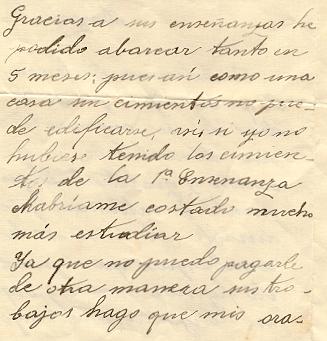 Gracias a sus enseñanzas he
podido abarcar tanto en
5 meses; pues así como una
casa sin cimientos no pue-
de edificarse, así si yo no
hubiese tenido los cimien-
tos de la 1ª Enseñanza
Habríame costado mucho
más estudiar
Ya que no puedo pagarle
de otra manera sus tra-
bajos hago que mis ora-